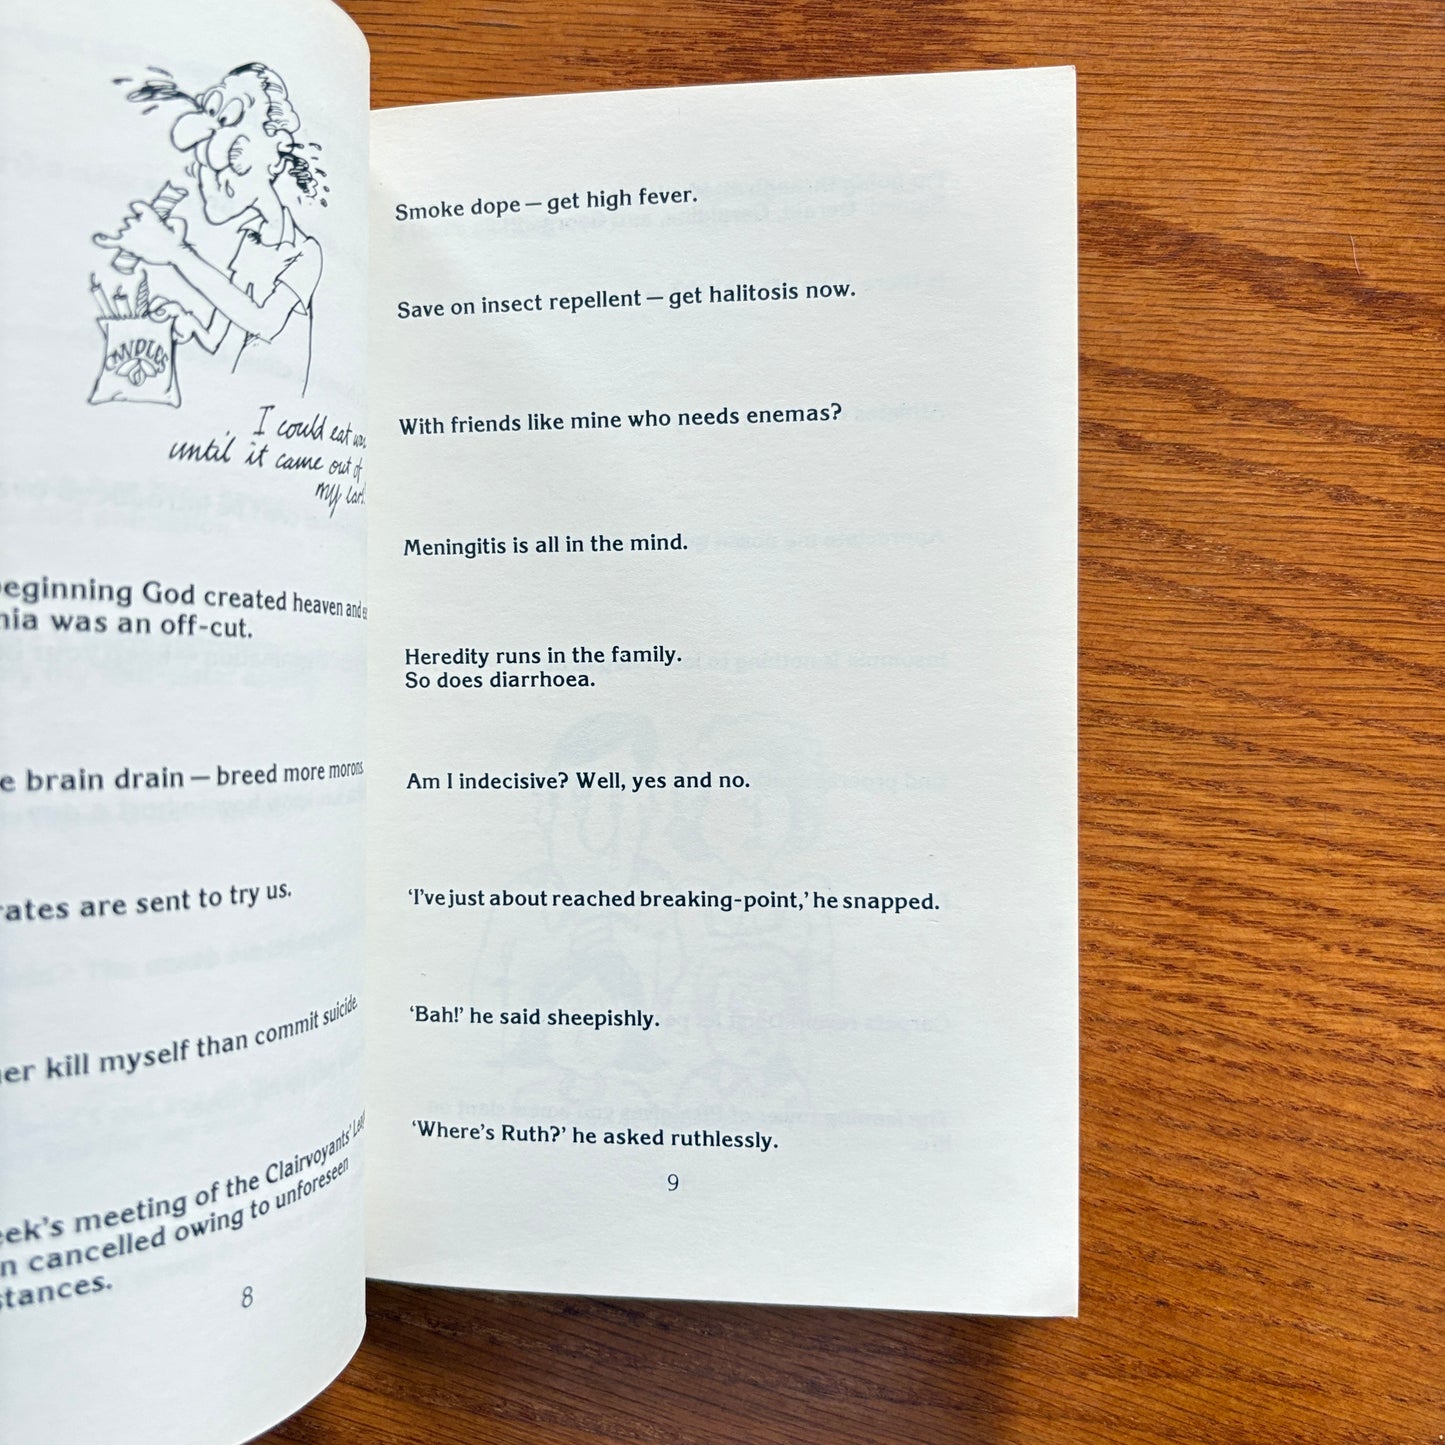 CANDLES
I could eat wax
until it came out of
my
beginning God created heaven and
was an off-cut.
brain drain — breed more morons
are sent to try us.
kill myself than commit suicide
meeting of the Clairvoyants'
cancelled owing to unforeseen
8
Smoke dope — get high fever.
Save on insect repellent — get halitosis now.
With friends like mine who needs enemas?
Meningitis is all in the mind.
Heredity runs in the family.
So does diarrhoea.
Am I indecisive? Well, yes and no.
'I've just about reached breaking-point,' he snapped.
'Bah!' he said sheepishly.
'Where's Ruth?' he asked ruthlessly.
9